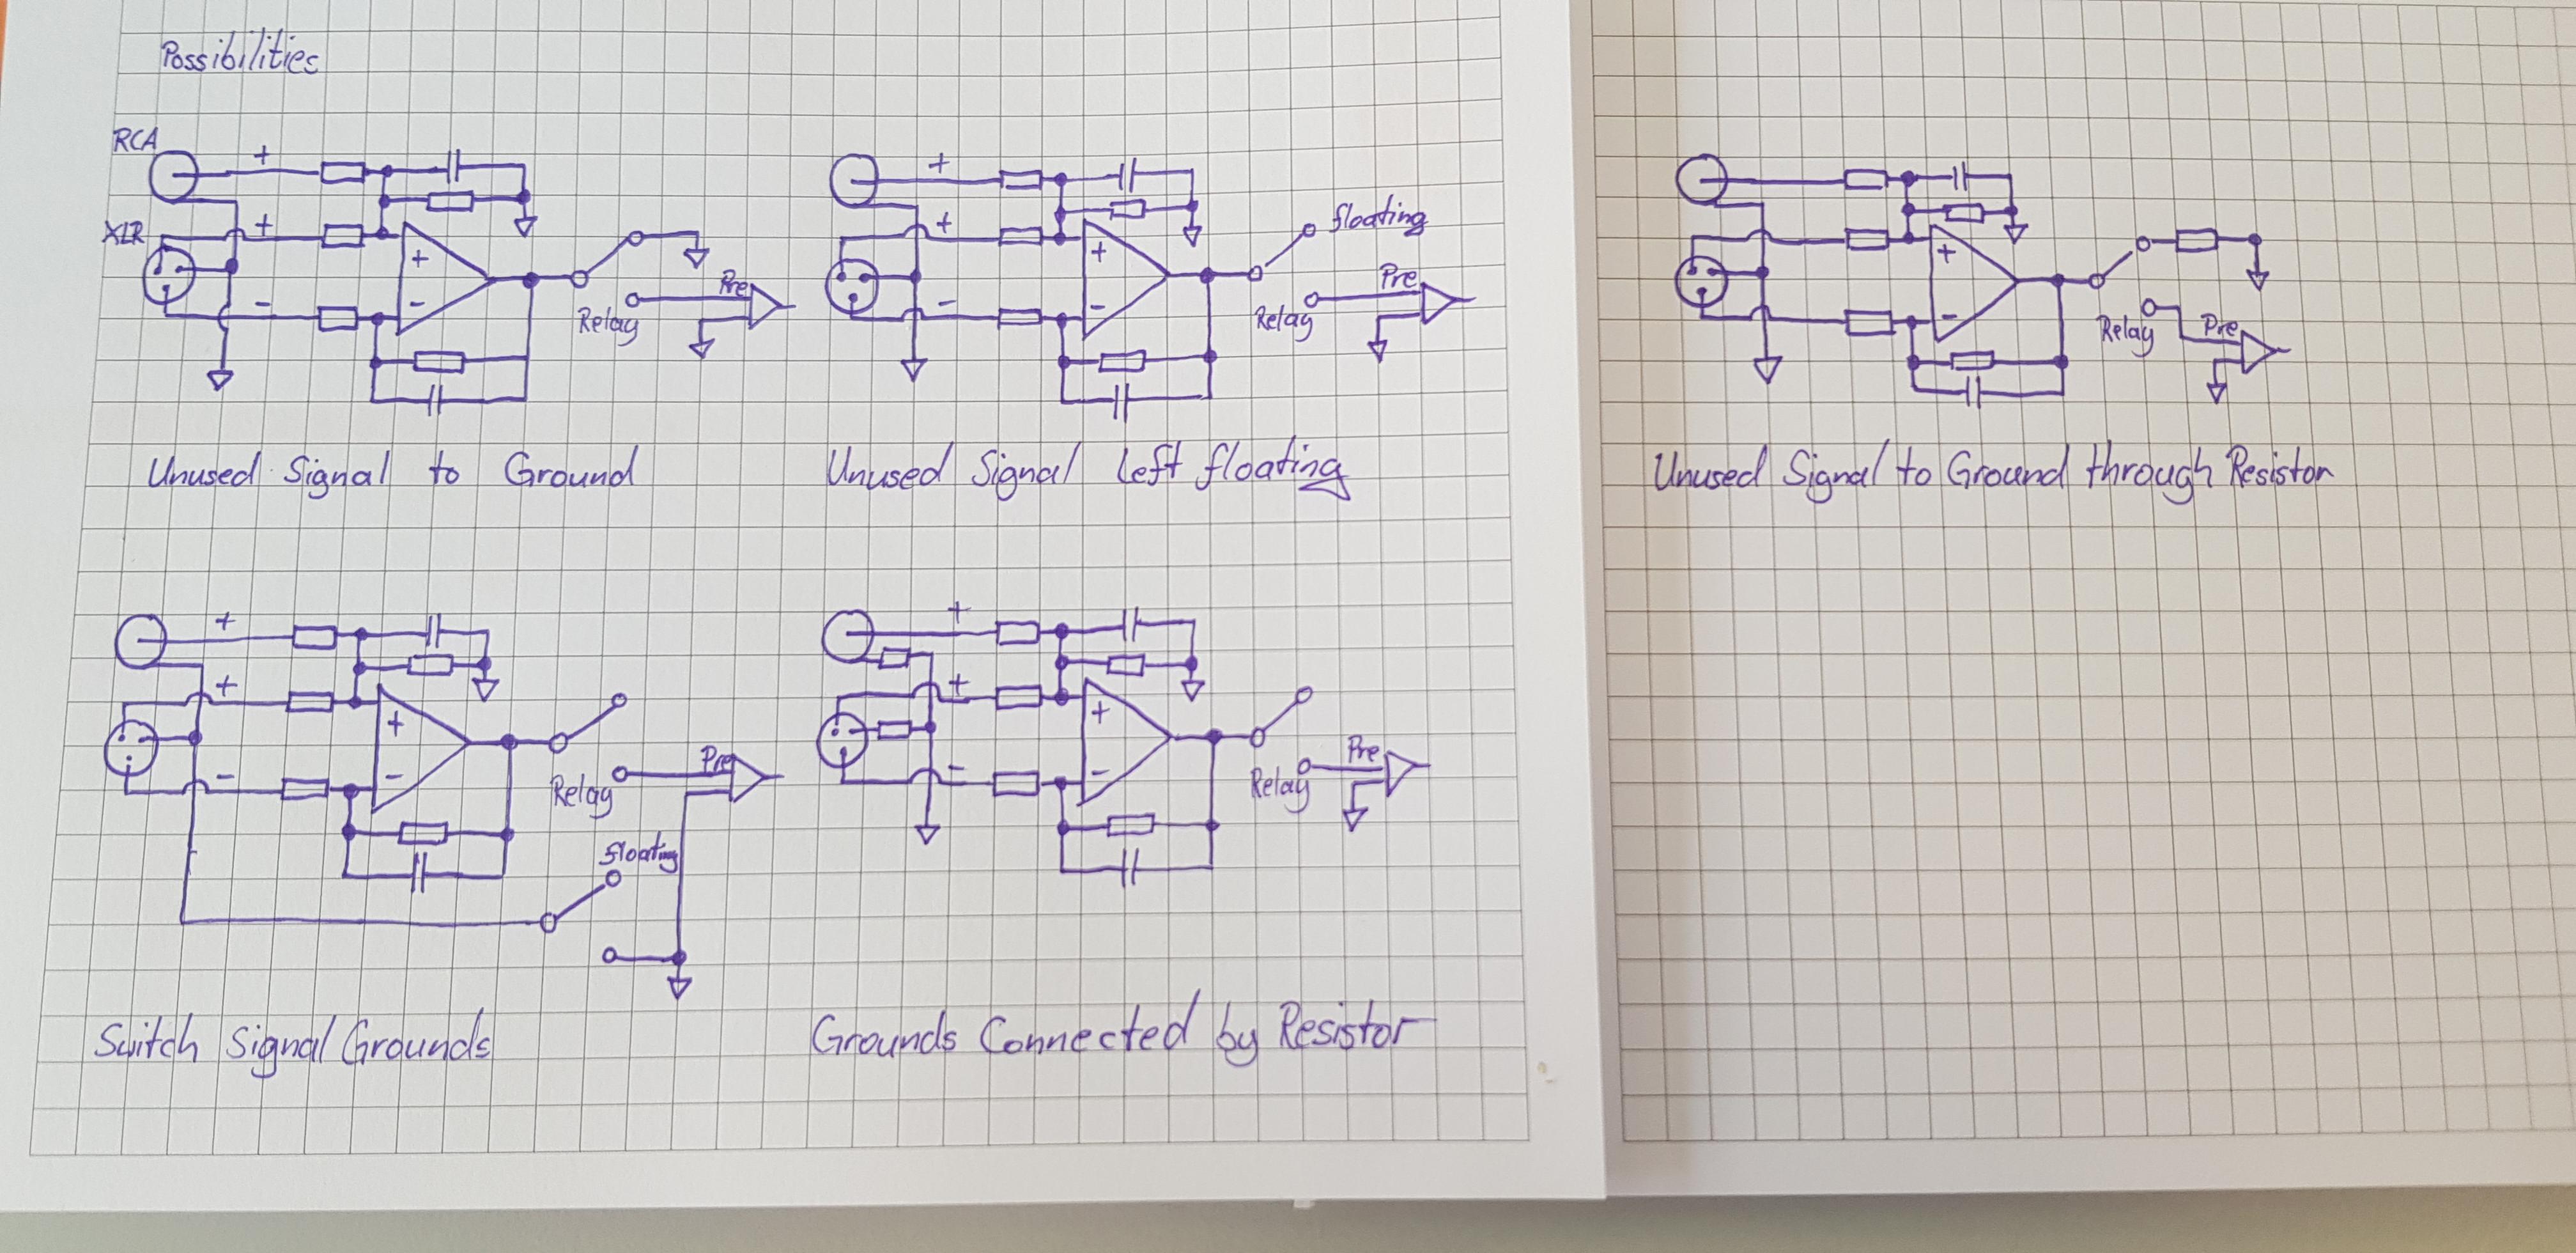 Possibilities
RCA
+
XLR
+
+
-
-
Pre
Relay
Unused Signal to Ground
+
+
+
-
-
floating
Pre
Relay
Unused Signal Left floating
+
-
Relay
Pre
Unused Signal to Ground through Resistor
+
+
+
-
-
Pre
Relay
floating
Switch Signal Grounds
+
+
+
-
-
Pre
Relay
Grounds Connected by Resistor